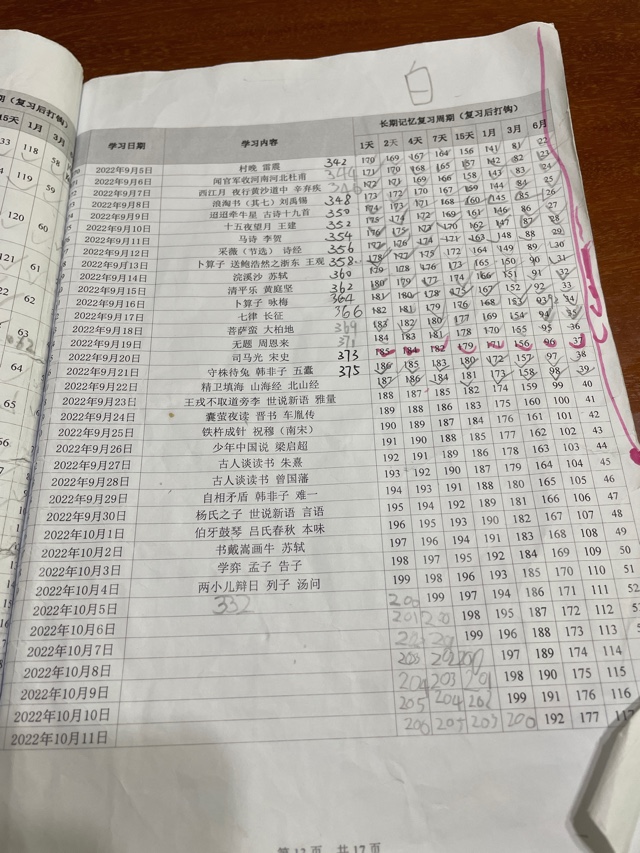 期（复习后打钩）
15天 1月 3月
33 118 58
119 59
120 60
121 61
22 62
63
64
65
66
67
长期记忆复习周期（复习后打钩）
学习日期 学习内容 1天 2天 4天 7天 15天 1月 3月 6月
2022年9月5日 村晚 雷震 342 170 169 167 164 156 141 81 22
2022年9月6日 闻官军收河南河北杜甫 344 171 170 168 165 157 142 82 23
2022年9月7日 西江月 夜行黄沙道中 辛弃疾 346 172 171 169 166 158 143 83 24
2022年9月8日 浪淘书（其七）刘禹锡 348 173 172 170 167 159 144 84 25
2022年9月9日 迢迢牵牛星 古诗十九首 350 174 173 171 168 160 145 85 26
2022年9月10日 十五夜望月 王建 352 175 174 172 169 161 146 86 27
2022年9月11日 马诗 李贺 354 176 175 173 170 162 147 87 28
2022年9月12日 采薇（节选） 诗经 356 177 176 174 171 163 148 88 29
2022年9月13日 卜算子 送鲍浩然之浙东 王观 358 178 177 175 172 164 149 89 30
2022年9月14日 浣溪沙 苏轼 360 179 178 176 173 165 150 90 31
2022年9月15日 清平乐 黄庭坚 362 180 179 177 174 166 151 91 32
2022年9月16日 卜算子 咏梅 364 181 180 178 175 167 152 92 33
2022年9月17日 七律 长征 366 182 181 179 176 168 153 93 34
2022年9月18日 菩萨蛮 大柏地 369 183 182 180 177 169 154 94 35
2022年9月19日 无题 周恩来 371 184 183 181 178 170 155 95 36
2022年9月20日 司马光 宋史 373 185 184 182 179 171 156 96 37
2022年9月21日 守株待兔 韩非子 五蠹 375 186 185 183 180 172 157 97 38
2022年9月22日 精卫填海 山海经 北山经 187 186 184 181 173 158 98 39
2022年9月23日 王戎不取道旁李 世说新语 雅量 188 187 185 182 174 159 99 40
2022年9月24日 囊萤夜读 晋书 车胤传 189 188 186 183 175 160 100 41
2022年9月25日 铁杵成针 祝穆（南宋） 190 189 187 184 176 161 101 42
2022年9月26日 少年中国说 梁启超 191 190 188 185 177 162 102 43
2022年9月27日 古人谈读书 朱熹 192 191 189 186 178 163 103 44
2022年9月28日 古人谈读书 曾国藩 193 192 190 187 179 164 104 45
2022年9月29日 自相矛盾 韩非子 难一 194 193 191 188 180 165 105 46
2022年9月30日 杨氏之子 世说新语 言语 195 194 192 189 181 166 106 47
2022年10月1日 伯牙鼓琴 吕氏春秋 本味 196 195 193 190 182 167 107 48
2022年10月2日 书戴嵩画牛 苏轼 197 196 194 191 183 168 108 49
2022年10月3日 学弈 孟子 告子 198 197 195 192 184 169 109 50
2022年10月4日 两小儿辩日 列子 汤问 199 198 196 193 185 170 110 51
2022年10月5日 332 200 199 197 194 186 171 111 52
2022年10月6日 201 200 198 195 187 172 112
2022年10月7日 199 196 188 173 113
2022年10月8日 197 189 174 114
2022年10月9日 204 203 201 198 190 175 115
2022年10月10日 205 204 202 199 191 176 116
2022年10月11日 206 205 203 200 192 177
第12页 共17页